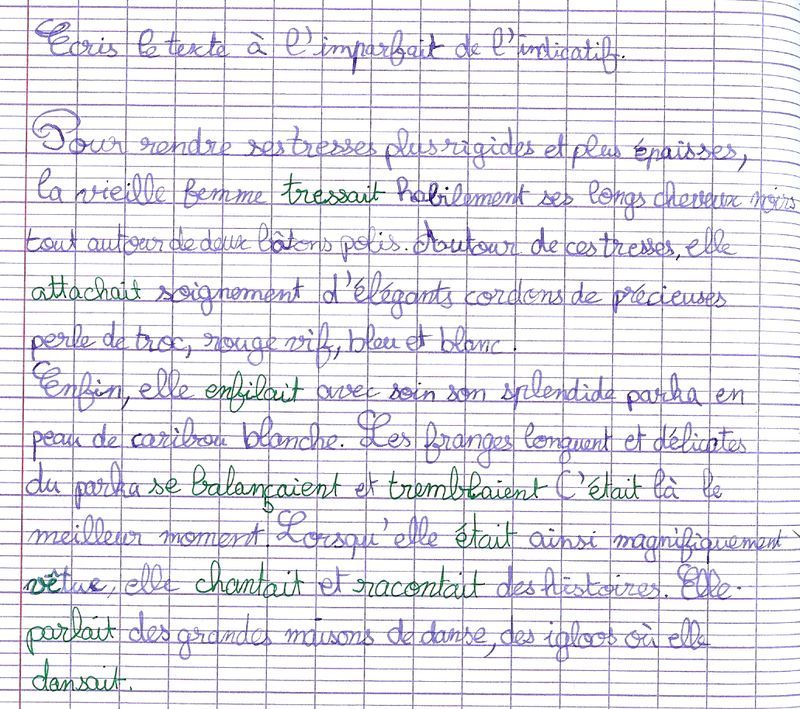 Ecris le texte à l'imparfait de l'indicatif.
Pour rendre ses tresses plus rigides et plus épaisses,
la vieille femme tressait habilement ses longs cheveux noirs
tout autour de deux bâtons polis. Autour de ces tresses, elle
attachait soignement d'élégants cordons de précieuses
perle de troc, rouge vif, bleu et blanc.
Enfin, elle enfilait avec soin son splendide parka en
peau de caribou blanche. Les franges longuent et délicates
du parka se balançaient et tremblaient C'était là le
meilleur moment. Lorsqu'elle était ainsi magnifiquement
vêtue, elle chantait et racontait des histoires. Elle
parlait des grandes maisons de danse, des igloos où elle
dansait.